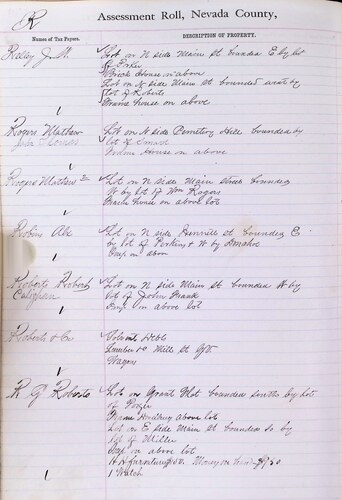 R
Assessment Roll, Nevada County,
Names of Tax Payers.
DESCRIPTION OF PROPERTY.
Lot on N side Main St bounded E by lot
of
Brick House on above
Lot on N side Main St bounded west by
lot of Roberts
Frame house on above
Rogers Mathew
Lot on N side Cemetery Hill bounded by
lot of
House on above
Rogers Mathew
Lot on N side Main Street bounded
W by lot of Wm Rogers
house on above lot
Robins Abe
Lot on N side St bounded E
by lot of Perkins & W by
Imp on above
Roberts Robert
Lot on N side Main St bounded W by
lot of John
Imp on above lot
Roberts & Co
Solvent Debts
Lumber to Mills St G.V.
Wagons
R G Roberts
Lot on Grant Plot bounded south by lot
of
Frame above lot
Lot on E side Main St bounded so by
lot of Miller
Imp on above lot
H H furniture Money on hand
1 Watch